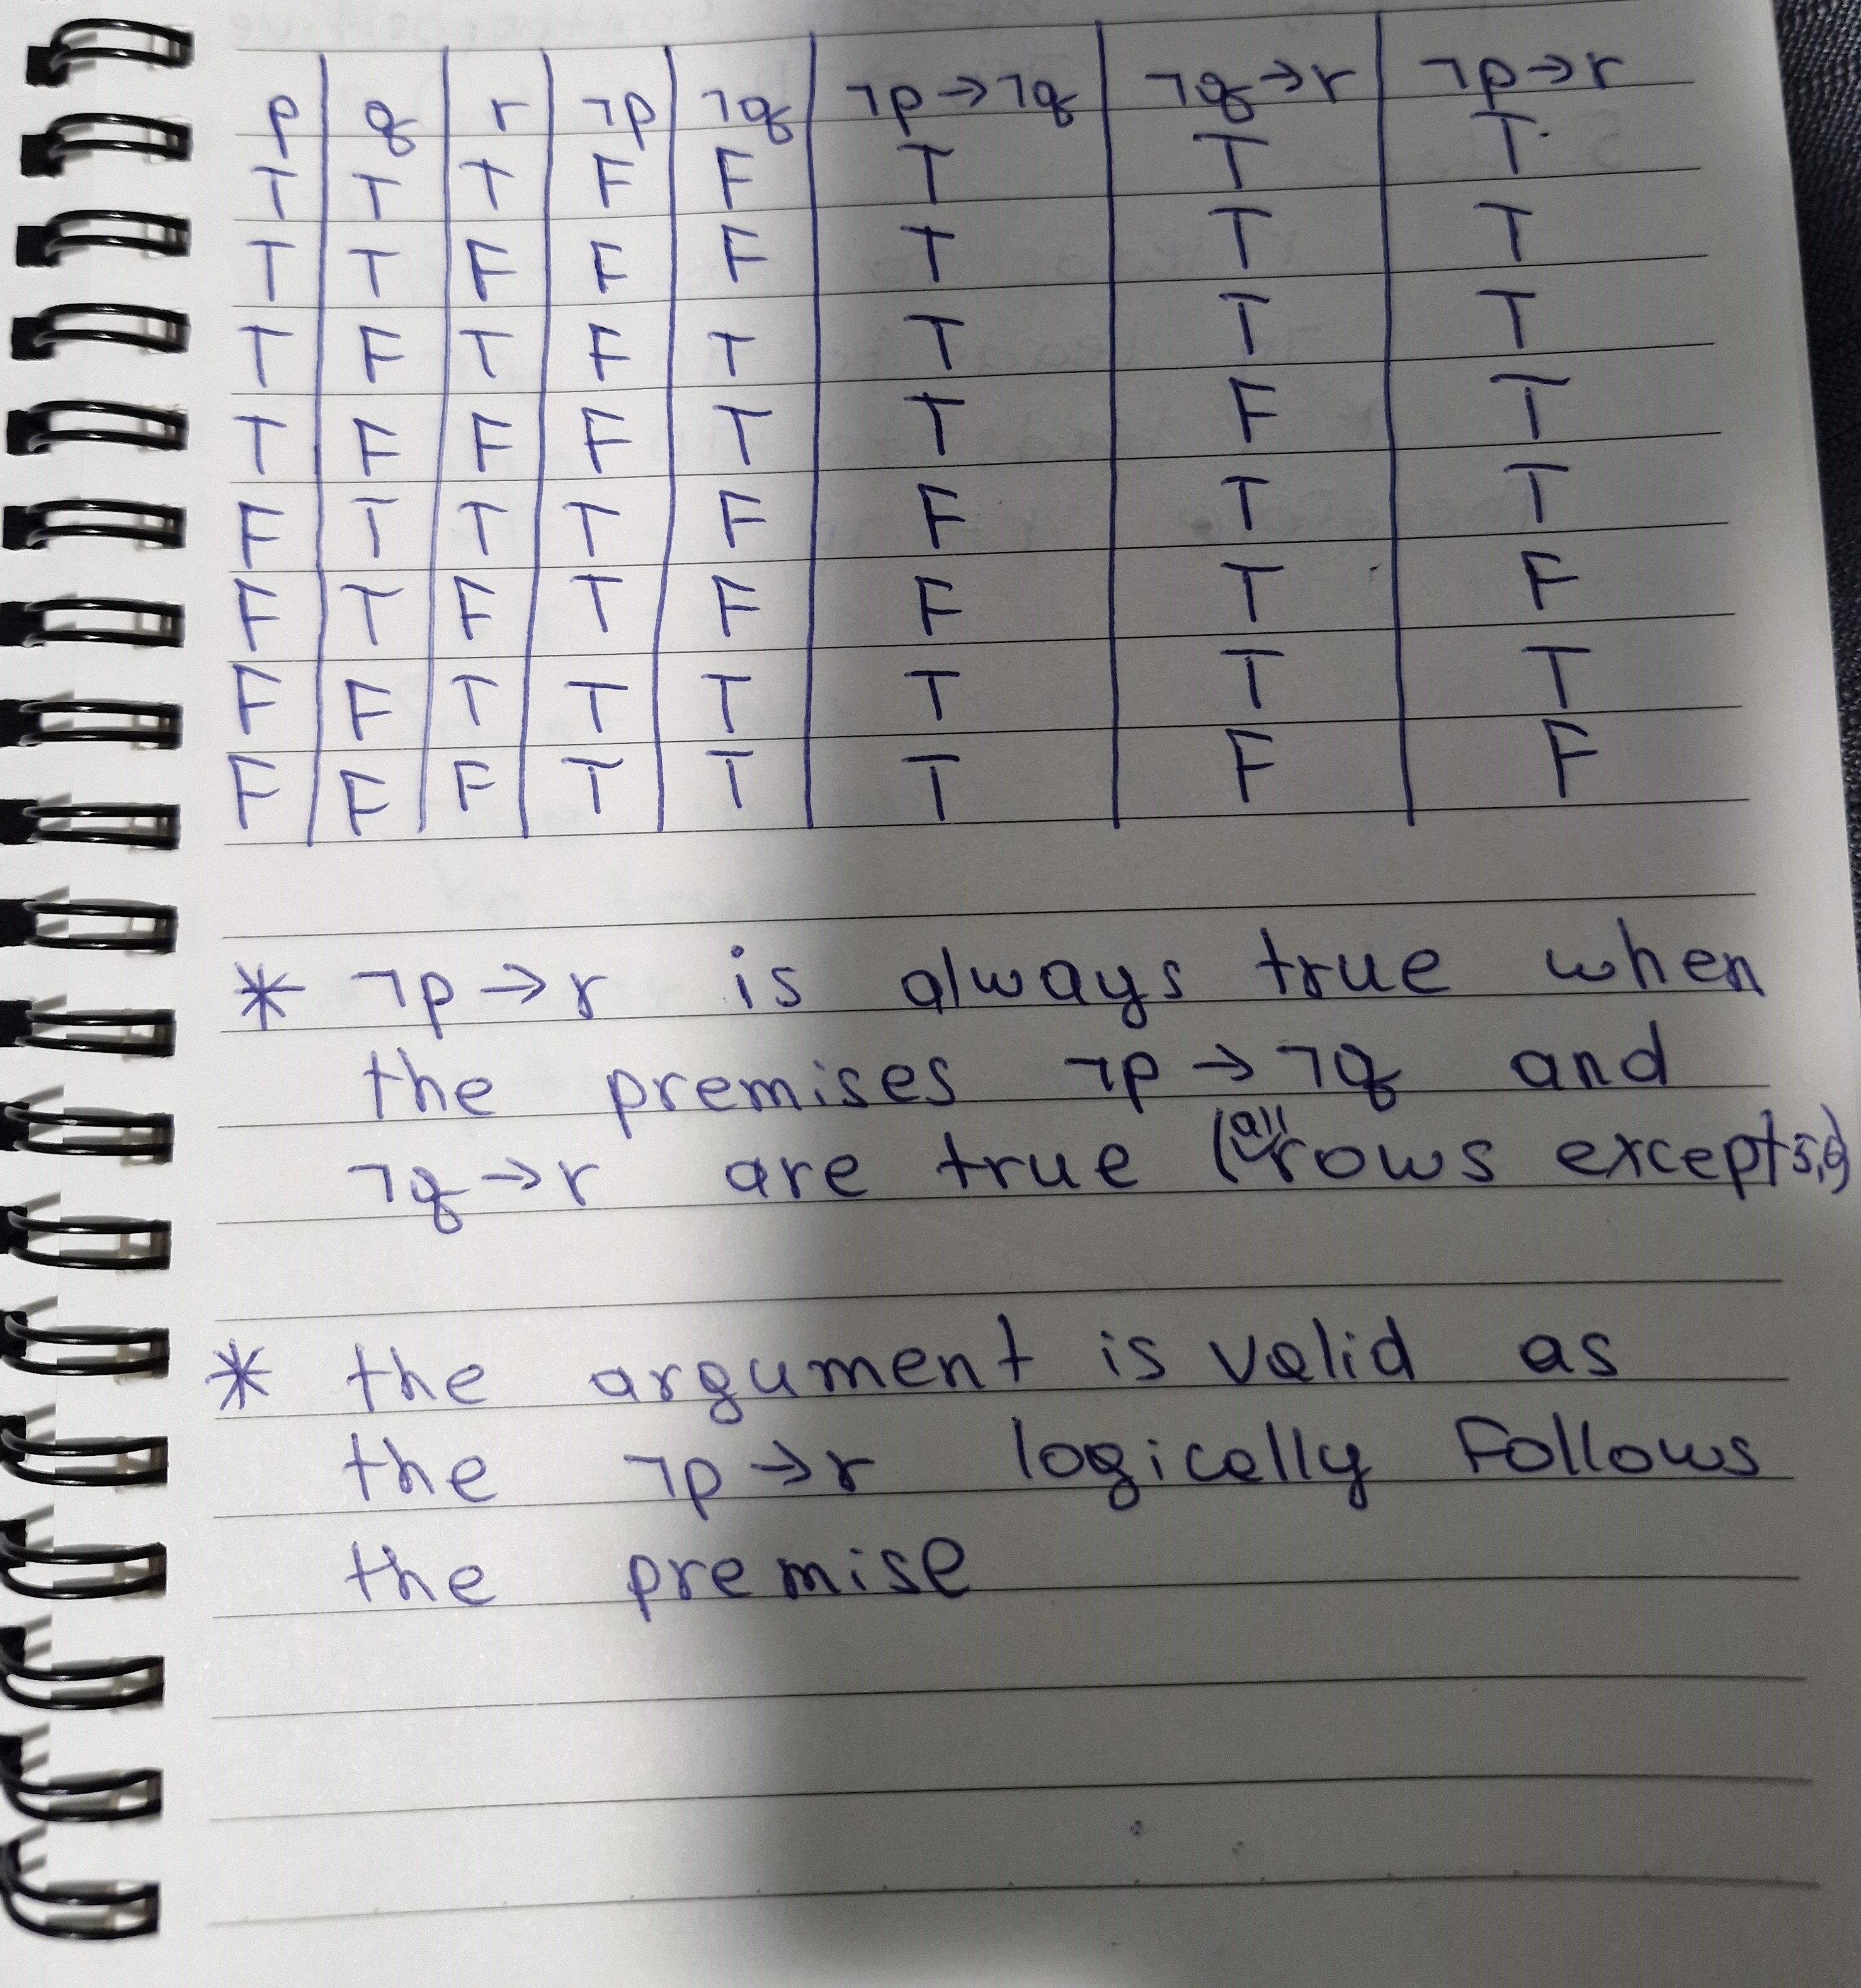 p q r ¬p ¬q ¬p→¬q ¬q→r ¬p→r
T T T F F T T T
T T F F F T T T
T F T F T T T T
T F F F T T F T
F T T T F F T T
F T F T F F T F
F F T T T T T T
F F F T T T F F
* ¬p→r is always true when
the premises ¬p→¬q and
¬q→r are true (all rows except 5,6)
* the argument is valid as
the ¬p→r logically Follows
the premise